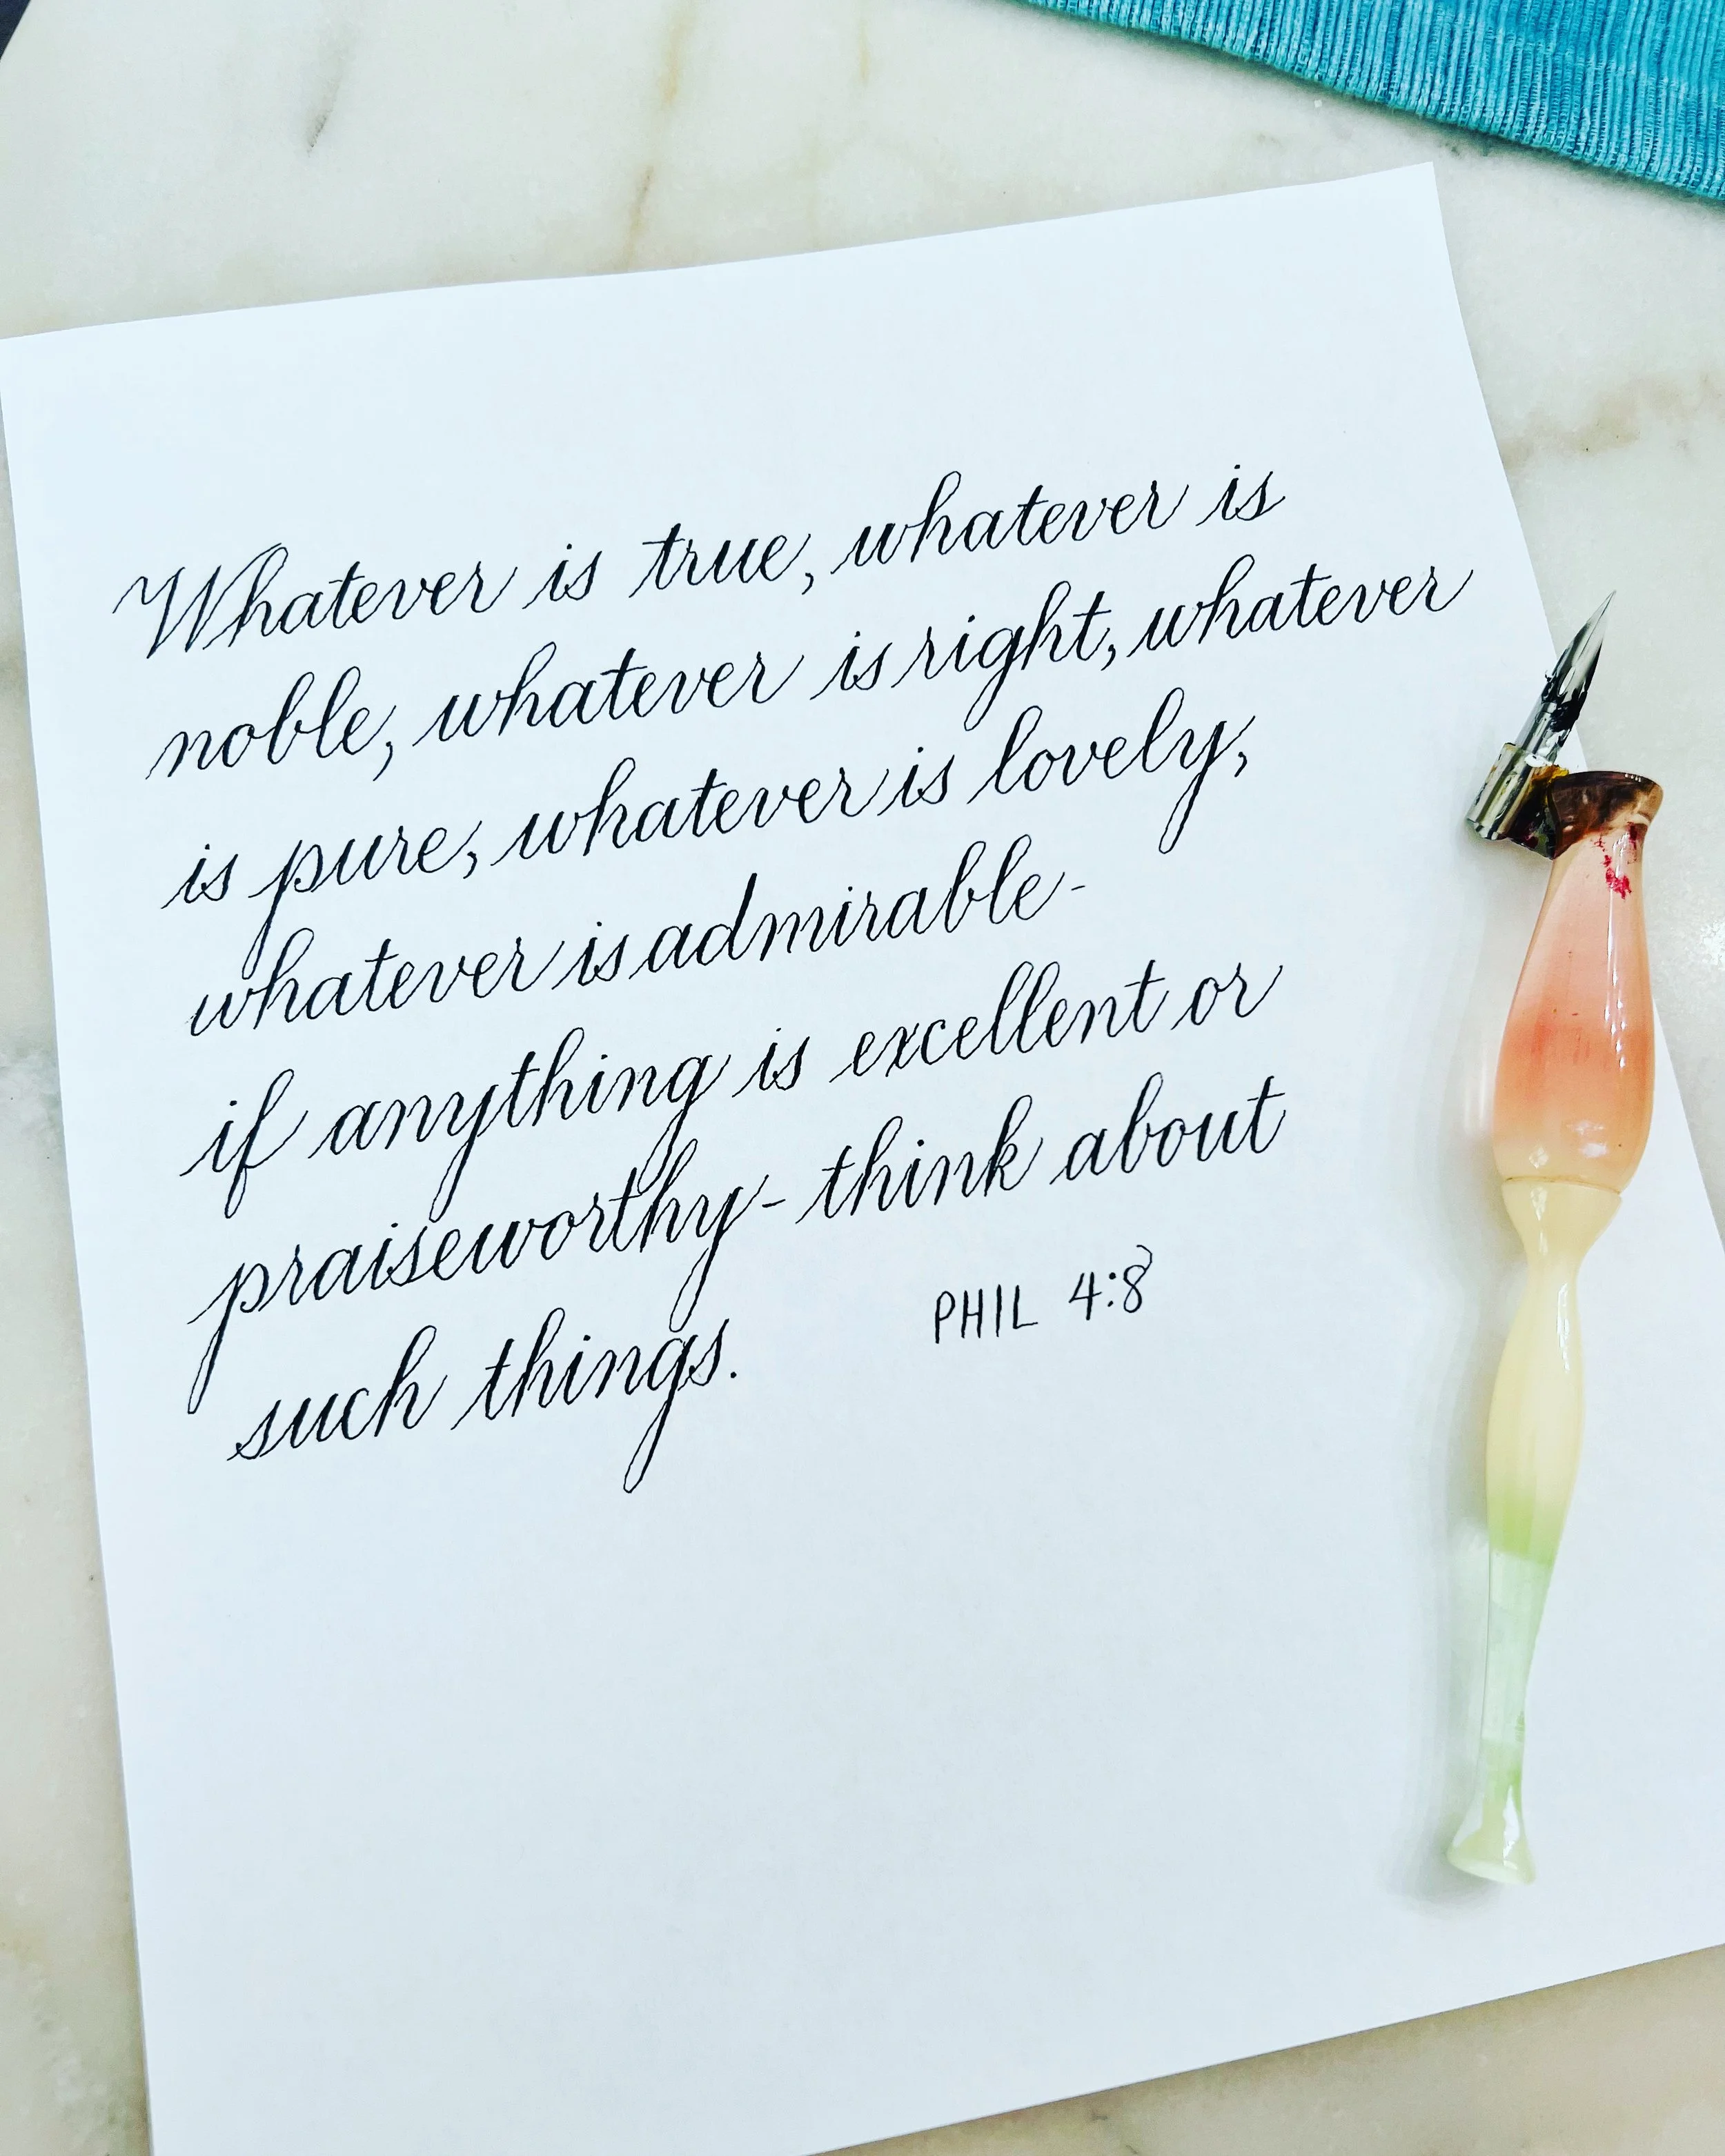 Whatever is true, whatever is
noble, whatever is right, whatever
is pure, whatever is lovely,
whatever is admirable-
if anything is excellent or
praiseworthy-think about
such things.
PHIL 4:8